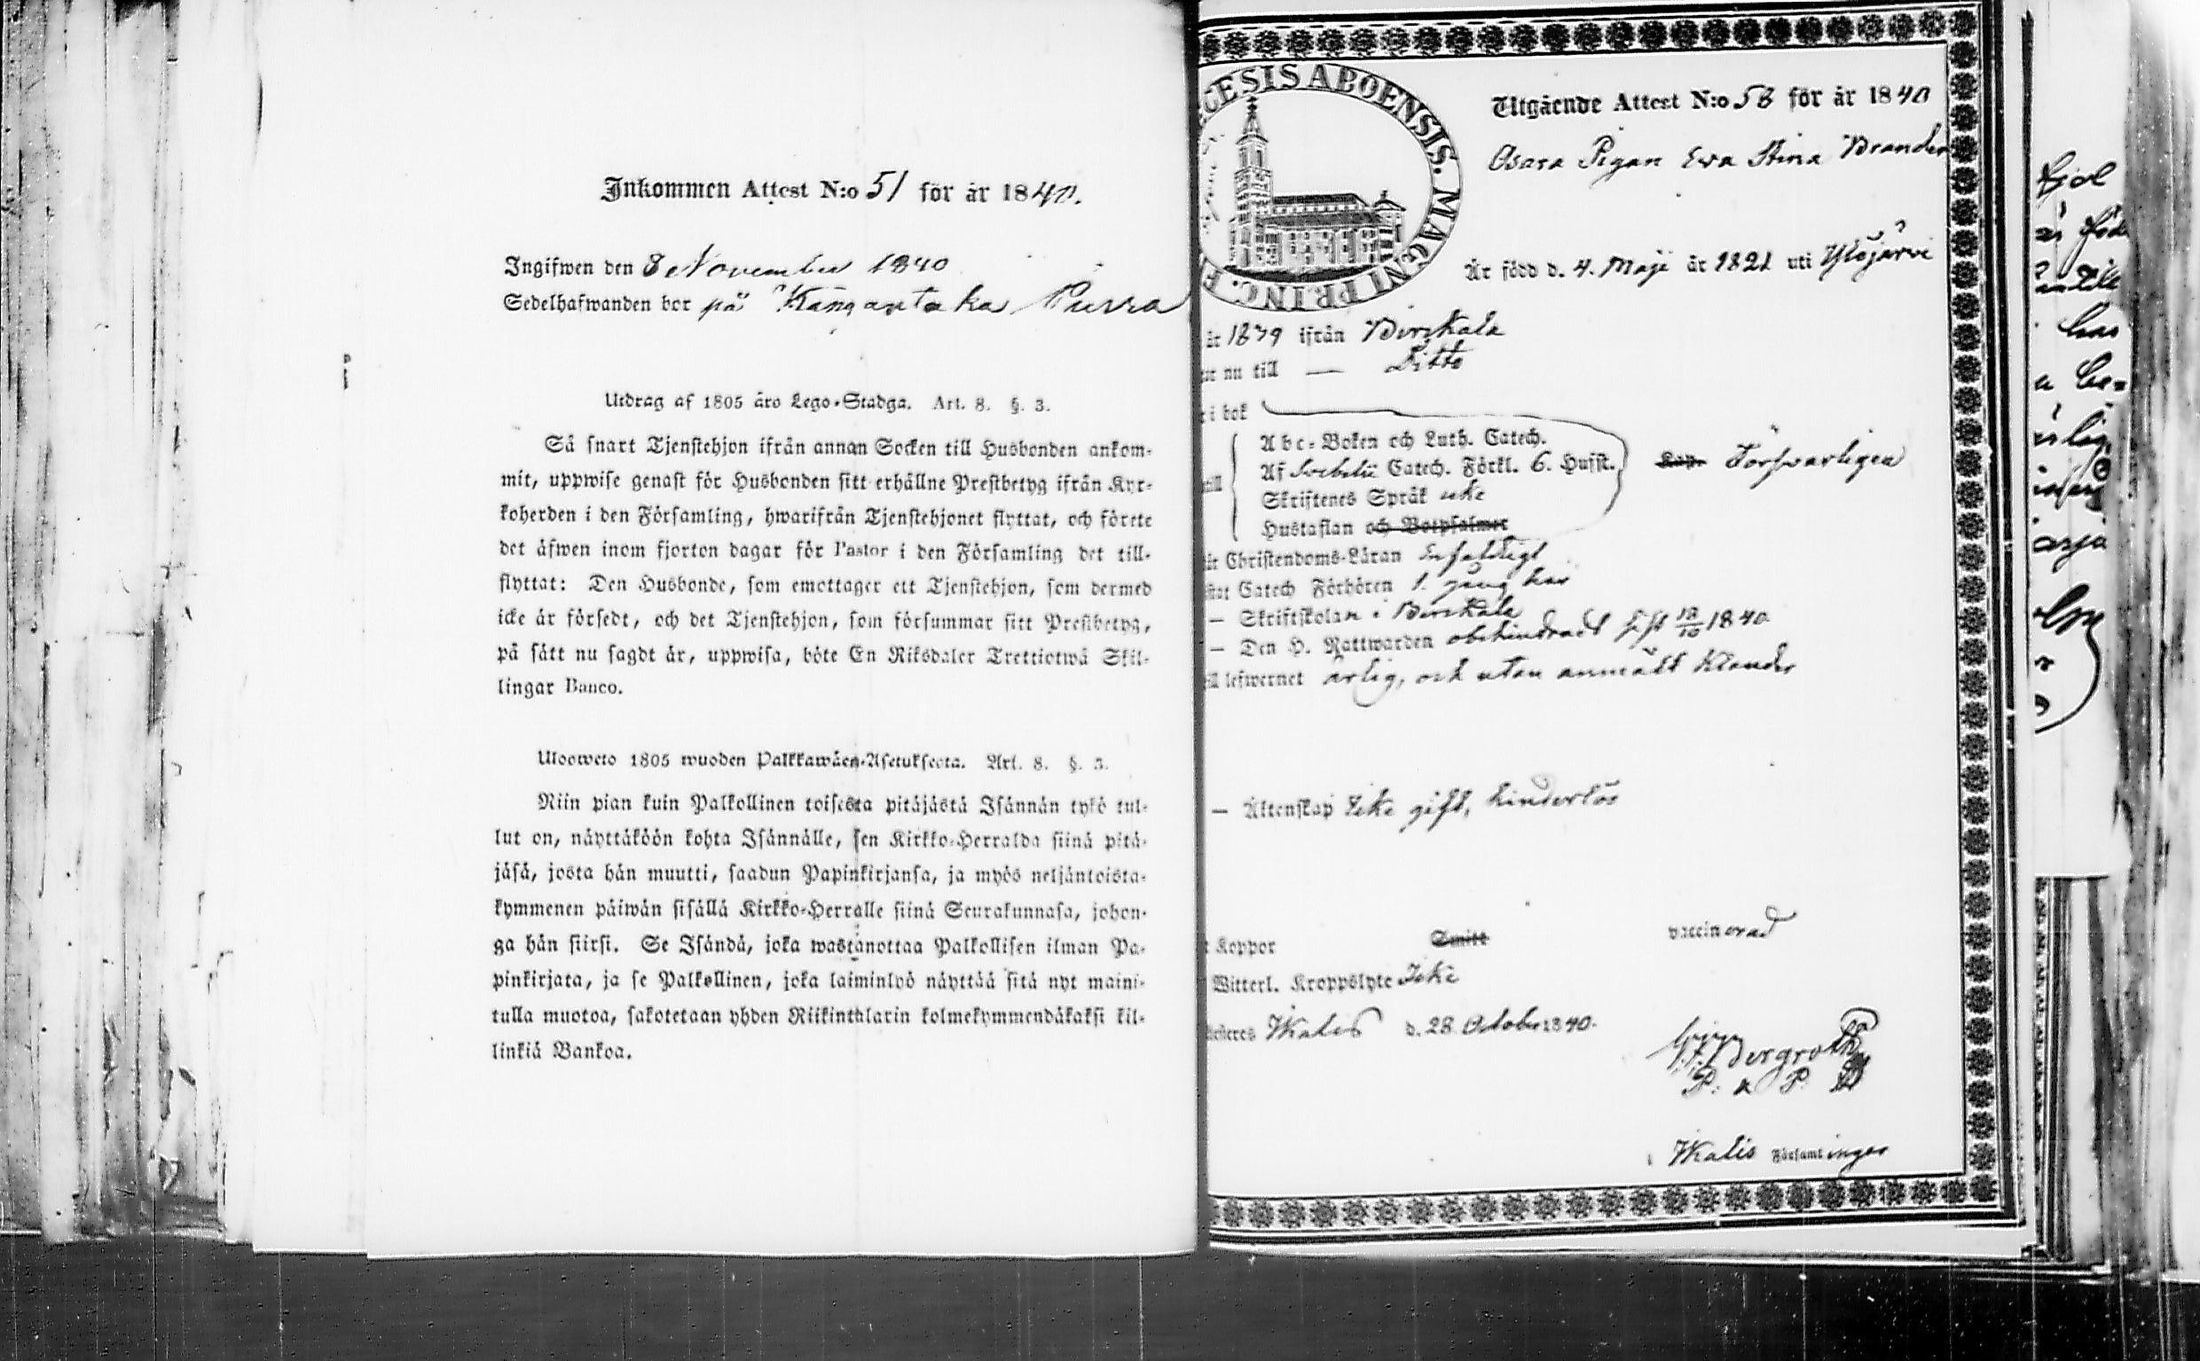 Inkommen Attest N:o 51 för år 1840.
Ingifwen den 8 November 1840
Sedelhafwanden bor på Kangantaka Purra
Utdrag af 1805 års Lego-Stadga. Art. 8. §. 3.
Så snart Tjenstehjon ifrån annan Socken till Husbonden ankom-
mit, uppwise genast för Husbonden sitt erhållne Prestbetyg ifrån Kyr-
koherden i den Församling, hwarifrån Tjenstehjonet flyttat, och förete
det äfwen inom fjorton dagar för Pastor i den Församling det till-
flyttat: Den Husbonde, som emottager ett Tjenstehjon, som dermed
icke är försedt, och det Tjenstehjon, som försummar sitt Prestbetyg,
på sätt nu sagdt är, uppwisa, böte En Riksdaler Trettiotwå Skil-
lingar Banco.
Ulosweto 1805 wuoden Palkkawäen-Asetuksesta. Art. 8. §. 3.
Niin pian kuin Palkollinen toisesta pitäjästä Isännän tykö tul-
lut on, näyttäköön kohta Isännälle, sen Kirkko-Herralda siinä pitä-
jäsä, josta hän muutti, saadun Papinkirjansa, ja myös neljäntoista-
kymmenen päiwän sisällä Kirkko-Herralle siinä Seurakunnasa, johon-
ga hän siirsi. Se Isändä, joka wastanottaa Palkollisen ilman Pa-
pinkirjata, ja se Palkollinen, joka laiminlyö näyttää sitä nyt maini-
tulla muotoa, sakotetaan yhden Riikinthlarin kolmekymmendäkaksi kil-
linkiä Bankoa.
GESIS ABOENSIS. MAGNI PRINC. F
Utgående Attest N:o 58 för år 1840
Pigan Ewa Stina Brander
Är född d. 4. Maji år 1821 uti Ylöjärvi
år 1839 ifrån Birkkala
nu till — Ditto
i bok
Abc-Boken och Luth. Catech.
Af Svebelii Catech. Förkl. 6. Hufst. Försvarligen
till Skriftenes Språk icke
Hustaflan och Botpsalmer
Christendoms-Läran Enfaldigt
Catech Förhören 1. gång här
— Skriftskolan i Birkkala
— Den H. Nattwarden obehindradt sist 18/10 1840
lefwernet ärlig, och utan anmält klander
— Äktenskap Icke gift, hinderlös
Koppor Smitt vaccinerad
Witterl. Kroppslyte Icke
Ikalis d. 28 October 1840.
Bergroth
P. & P.
i Ikalis Församlinger